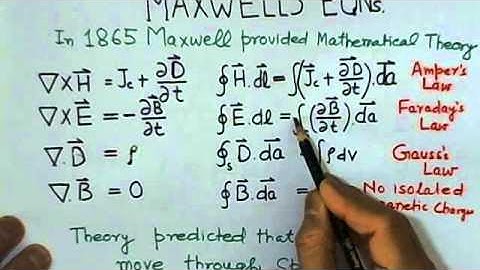 MAXWELLS EQNS.
In 1865 Maxwell provided Mathematical Theory
∇×H⃗ = J⃗c + ∂D⃗/∂t ∮H⃗.dl⃗ = ∫(J⃗c + ∂D⃗/∂t).da⃗ Amper's Law
∇×E⃗ = -∂B⃗/∂t ∮E⃗.dl = ∫(∂B⃗/∂t).da⃗ Faraday's Law
∇.D⃗ = ρ ∮s D⃗.da⃗ ∫ρdv Gauss's Law
∇.B⃗ = 0 ∮B⃗.da⃗ = No isolated Magnetic Charge
Theory predicted that
move through